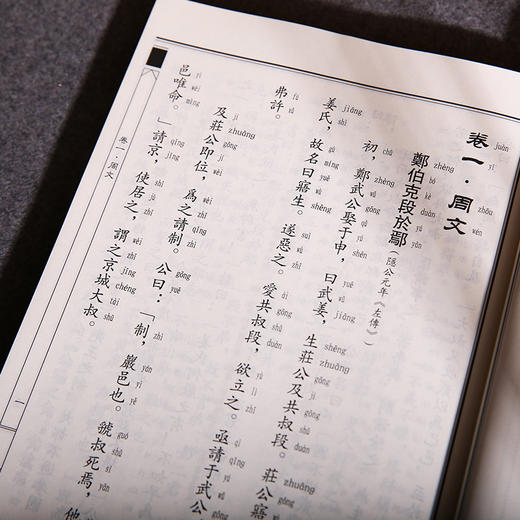 卷一·周文
鄭伯克段於鄢(隱公元年《左傳》)
初,鄭武公娶于申,曰武姜,生莊公及共叔段。莊公寤
姜氏,故名曰寤生。遂惡之。愛共叔段,欲立之。亟請于武公
弗許。
及莊公即位,爲之請制。公曰:「制,巖邑也。虢叔死焉,他
邑唯命。」請京,使居之,謂之京城大叔。
卷一·周文
一